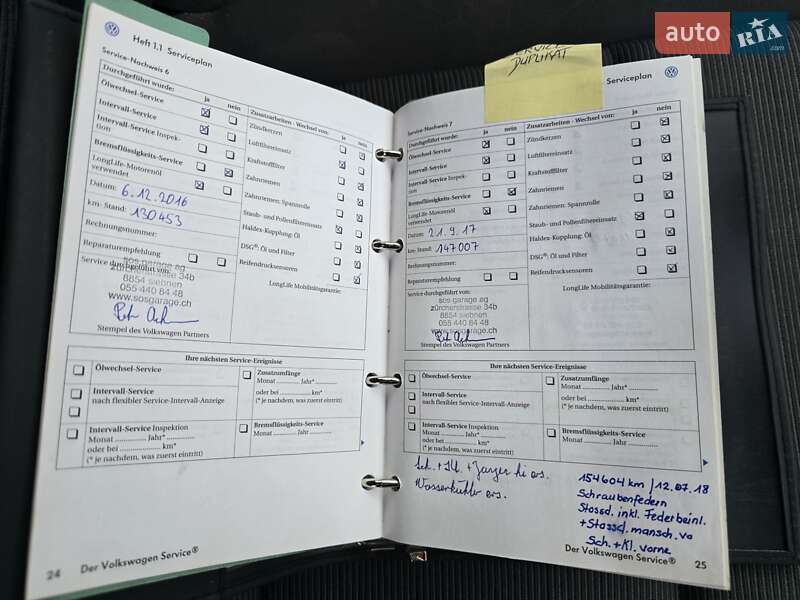 auto RIA .com
Heft 1.1 Serviceplan
Service-Nachweis 6
Durchgeführt wurde: ja nein
Ölwechsel-Service
Intervall-Service
Intervall-Service Inspek-
tion
Bremsflüssigkeits-Service
LongLife-Motorenöl
verwendet
Datum: 6.12.2016
km-Stand: 130453
Rechnungsnummer:
Reparaturempfehlung
Service durchgeführt von:
sos-garage ag
zürcherstrasse 34b
8854 siebnen
055 440 84 48
www.sosgarage.ch
Stempel des Volkswagen Partners
Zusatzarbeiten - Wechsel von: ja nein
Zündkerzen
Luftfiltereinsatz
Kraftstofffilter
Zahnriemen
Zahnriemen: Spannrolle
Staub- und Pollenfiltereinsatz
Haldex-Kupplung: Öl
DSG®: Öl und Filter
Reifendrucksensoren
LongLife Mobilitätsgarantie:
Ihre nächsten Service-Ereignisse
Ölwechsel-Service
Intervall-Service
nach flexibler Service-Intervall-Anzeige
Intervall-Service Inspektion
Monat ............ Jahr* ............
oder bei ............ km*
(* je nachdem, was zuerst eintritt)
Zusatzumfänge
Monat ............ Jahr*
oder bei ............ km*
(* je nachdem, was zuerst eintritt)
Bremsflüssigkeits-Service
Monat ............ Jahr ............
24 Der Volkswagen Service®
SERVICE
DUPLIKAT
Serviceplan
Service-Nachweis 7
Durchgeführt wurde: ja nein
Ölwechsel-Service
Intervall-Service
Intervall-Service Inspek-
tion
Bremsflüssigkeits-Service
LongLife-Motorenöl
verwendet
Datum: 21.9.17
km-Stand: 147007
Rechnungsnummer:
Reparaturempfehlung
Service durchgeführt von:
sos-garage ag
zürcherstrasse 34b
8854 siebnen
055 440 84 48
www.sosgarage.ch
Stempel des Volkswagen Partners
Zusatzarbeiten - Wechsel von: ja nein
Zündkerzen
Luftfiltereinsatz
Kraftstofffilter
Zahnriemen
Zahnriemen: Spannrolle
Staub- und Pollenfiltereinsatz
Haldex-Kupplung: Öl
DSG®: Öl und Filter
Reifendrucksensoren
LongLife Mobilitätsgarantie:
Ihre nächsten Service-Ereignisse
Ölwechsel-Service
Intervall-Service
nach flexibler Service-Intervall-Anzeige
Intervall-Service Inspektion
Monat ............ Jahr* ............
oder bei ............ km*
(* je nachdem, was zuerst eintritt)
Zusatzumfänge
Monat ............ Jahr*
oder bei ............ km*
(* je nachdem, was zuerst eintritt)
Bremsflüssigkeits-Service
Monat ............ Jahr ............
hi ers.
+Wasserkühler ers.
154604 km / 12.07.18
Schraubenfedern
Stossd. inkl. Federbeinl.
+Stossd. mansch. va
Sch.+Kl. vorne
Der Volkswagen Service® 25